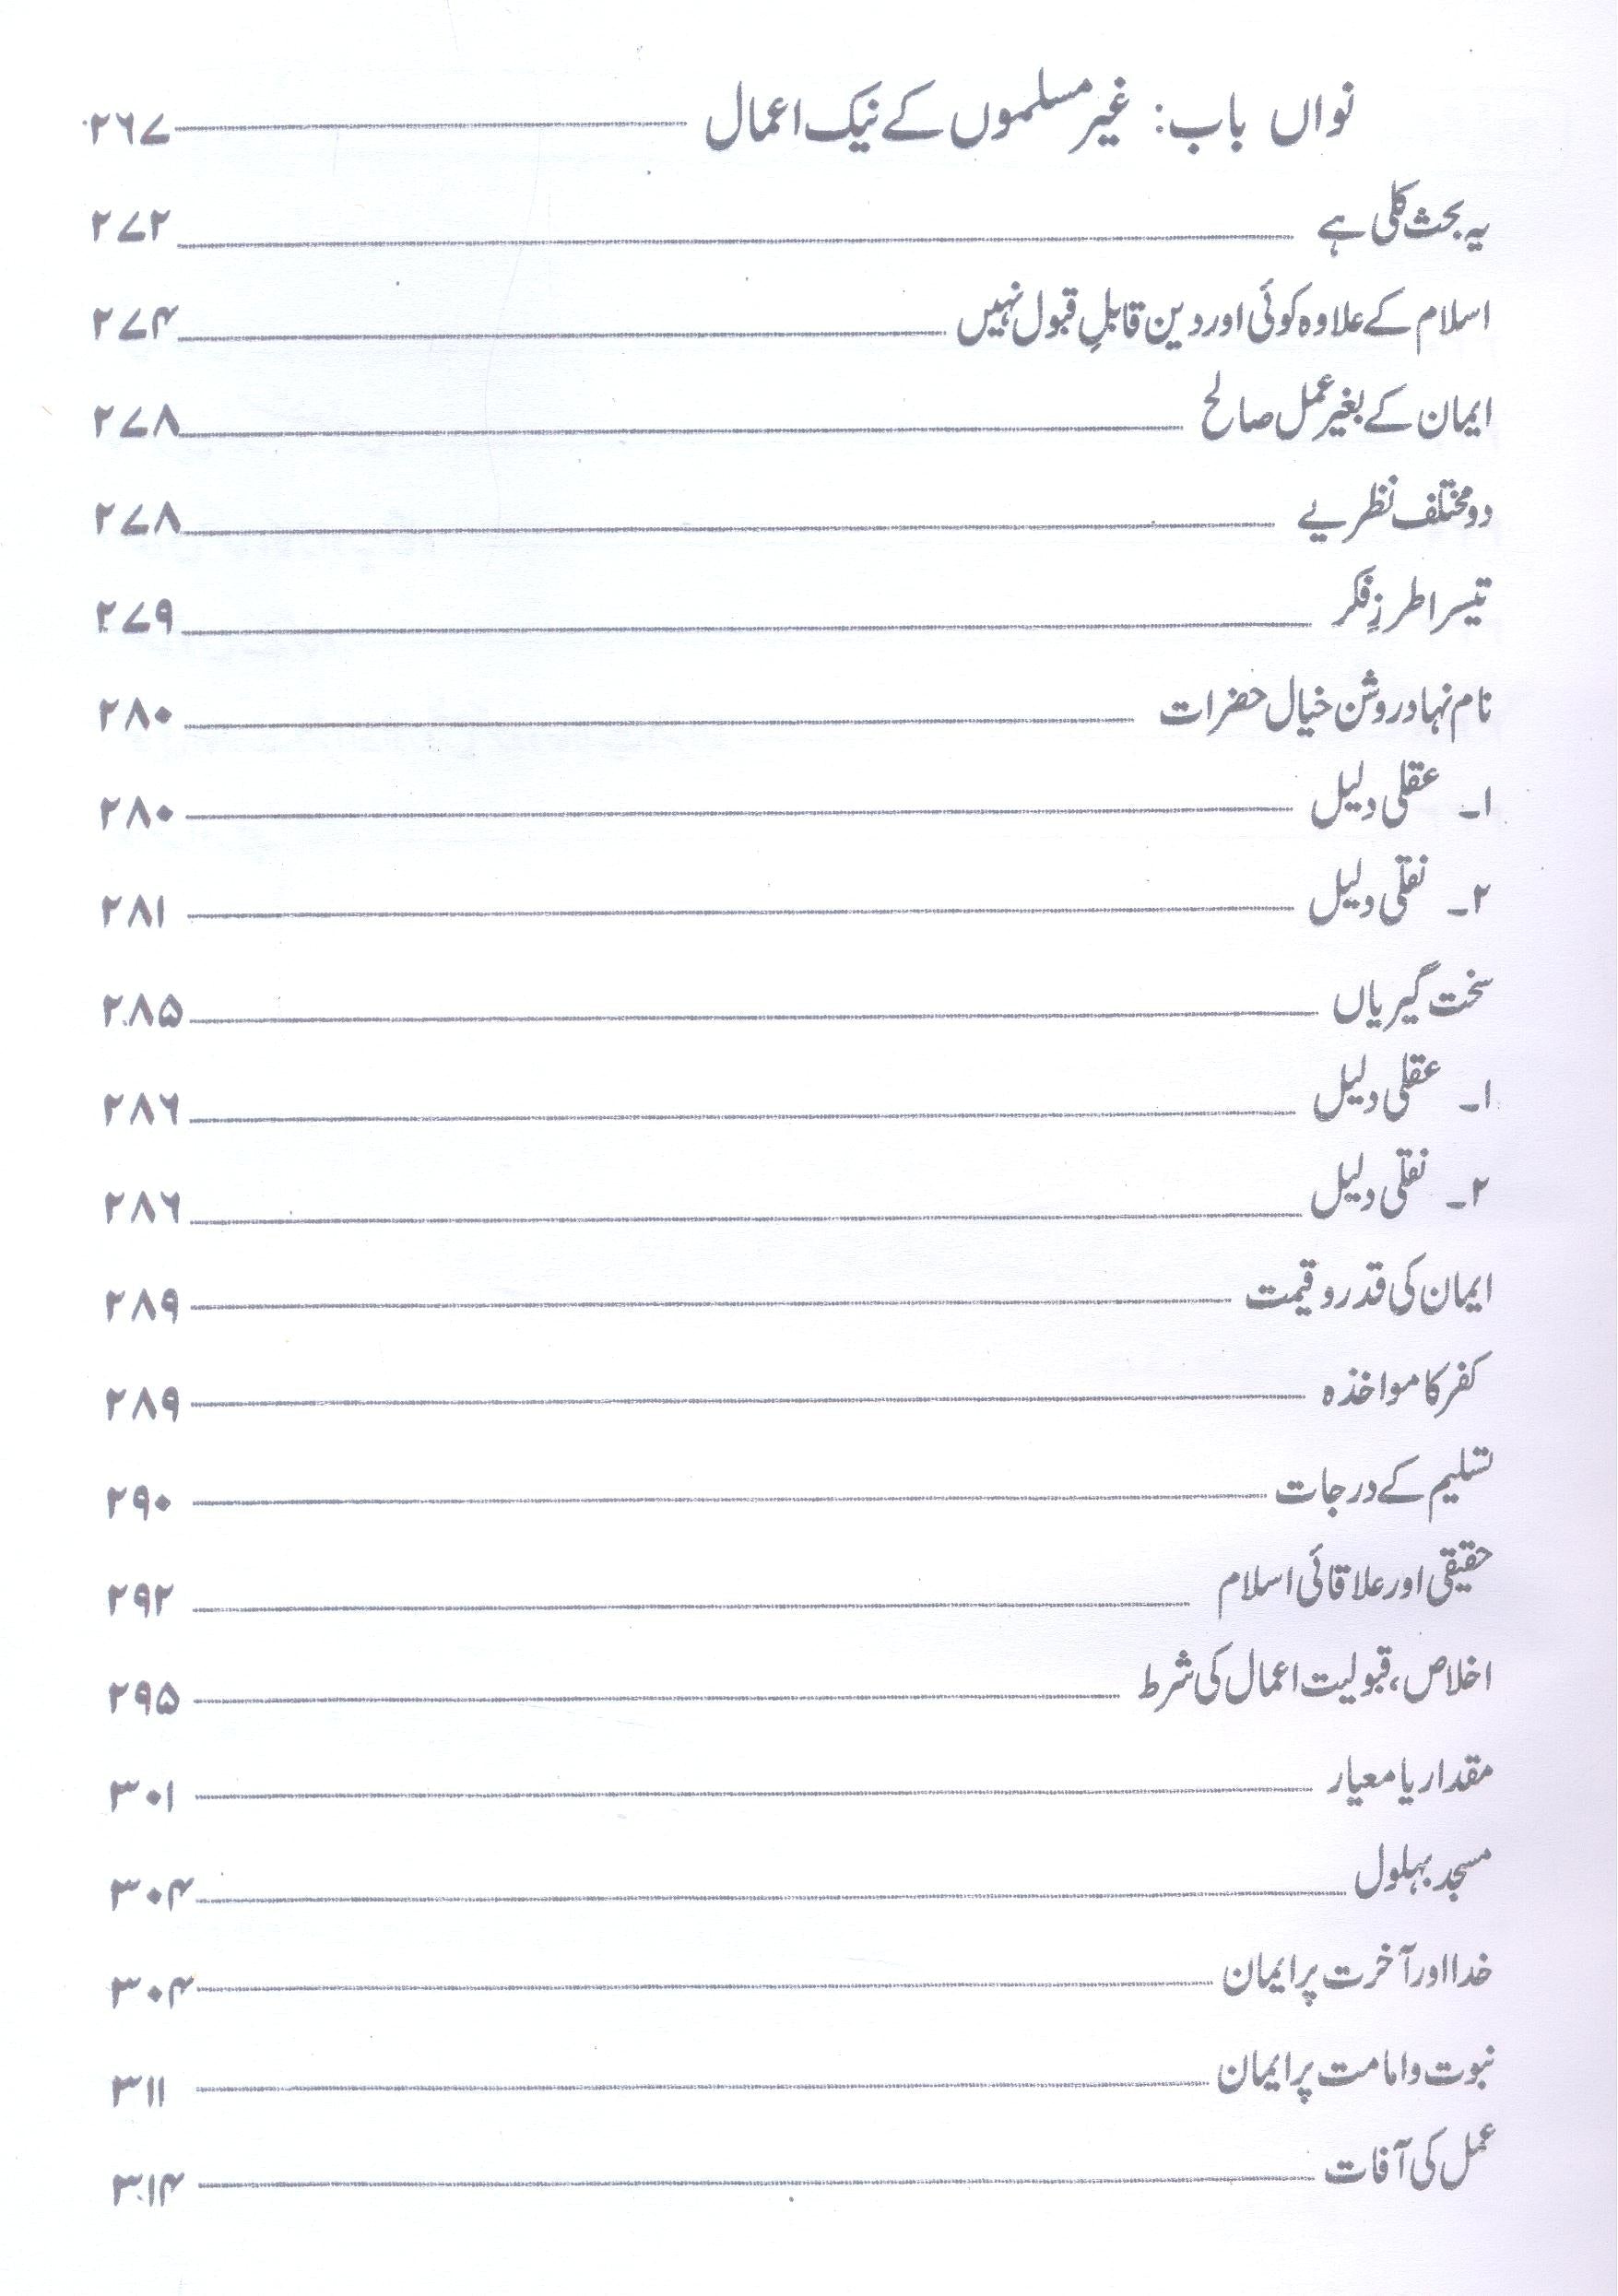 نواں باب: غیر مسلموں کے نیک اعمال ۲۶۷
یہ بحث کلی ہے ۲۷۲
اسلام کے علاوہ کوئی اور دین قابلِ قبول نہیں ۲۷۴
ایمان کے بغیر عمل صالح ۲۷۸
دو مختلف نظریے ۲۷۸
تیسرا طرزِ فکر ۲۷۹
نام نہاد روشن خیال حضرات ۲۸۰
۱۔ عقلی دلیل ۲۸۰
۲۔ نقلی دلیل ۲۸۱
سخت گیریاں ۲۸۵
۱۔ عقلی دلیل ۲۸۶
۲۔ نقلی دلیل ۲۸۶
ایمان کی قدر و قیمت ۲۸۹
کفر کا مواخذہ ۲۸۹
تسلیم کے درجات ۲۹۰
حقیقی اور علاقائی اسلام ۲۹۲
اخلاص، قبولیت اعمال کی شرط ۲۹۵
مقدار یا معیار ۳۰۱
مسجد بہلول ۳۰۴
خدا اور آخرت پر ایمان ۳۰۴
نبوت و امامت پر ایمان ۳۱۱
عمل کی آفات ۳۱۴